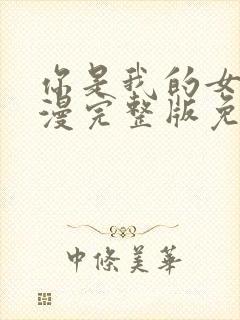 你是我的女
漫完整版免
中條美華